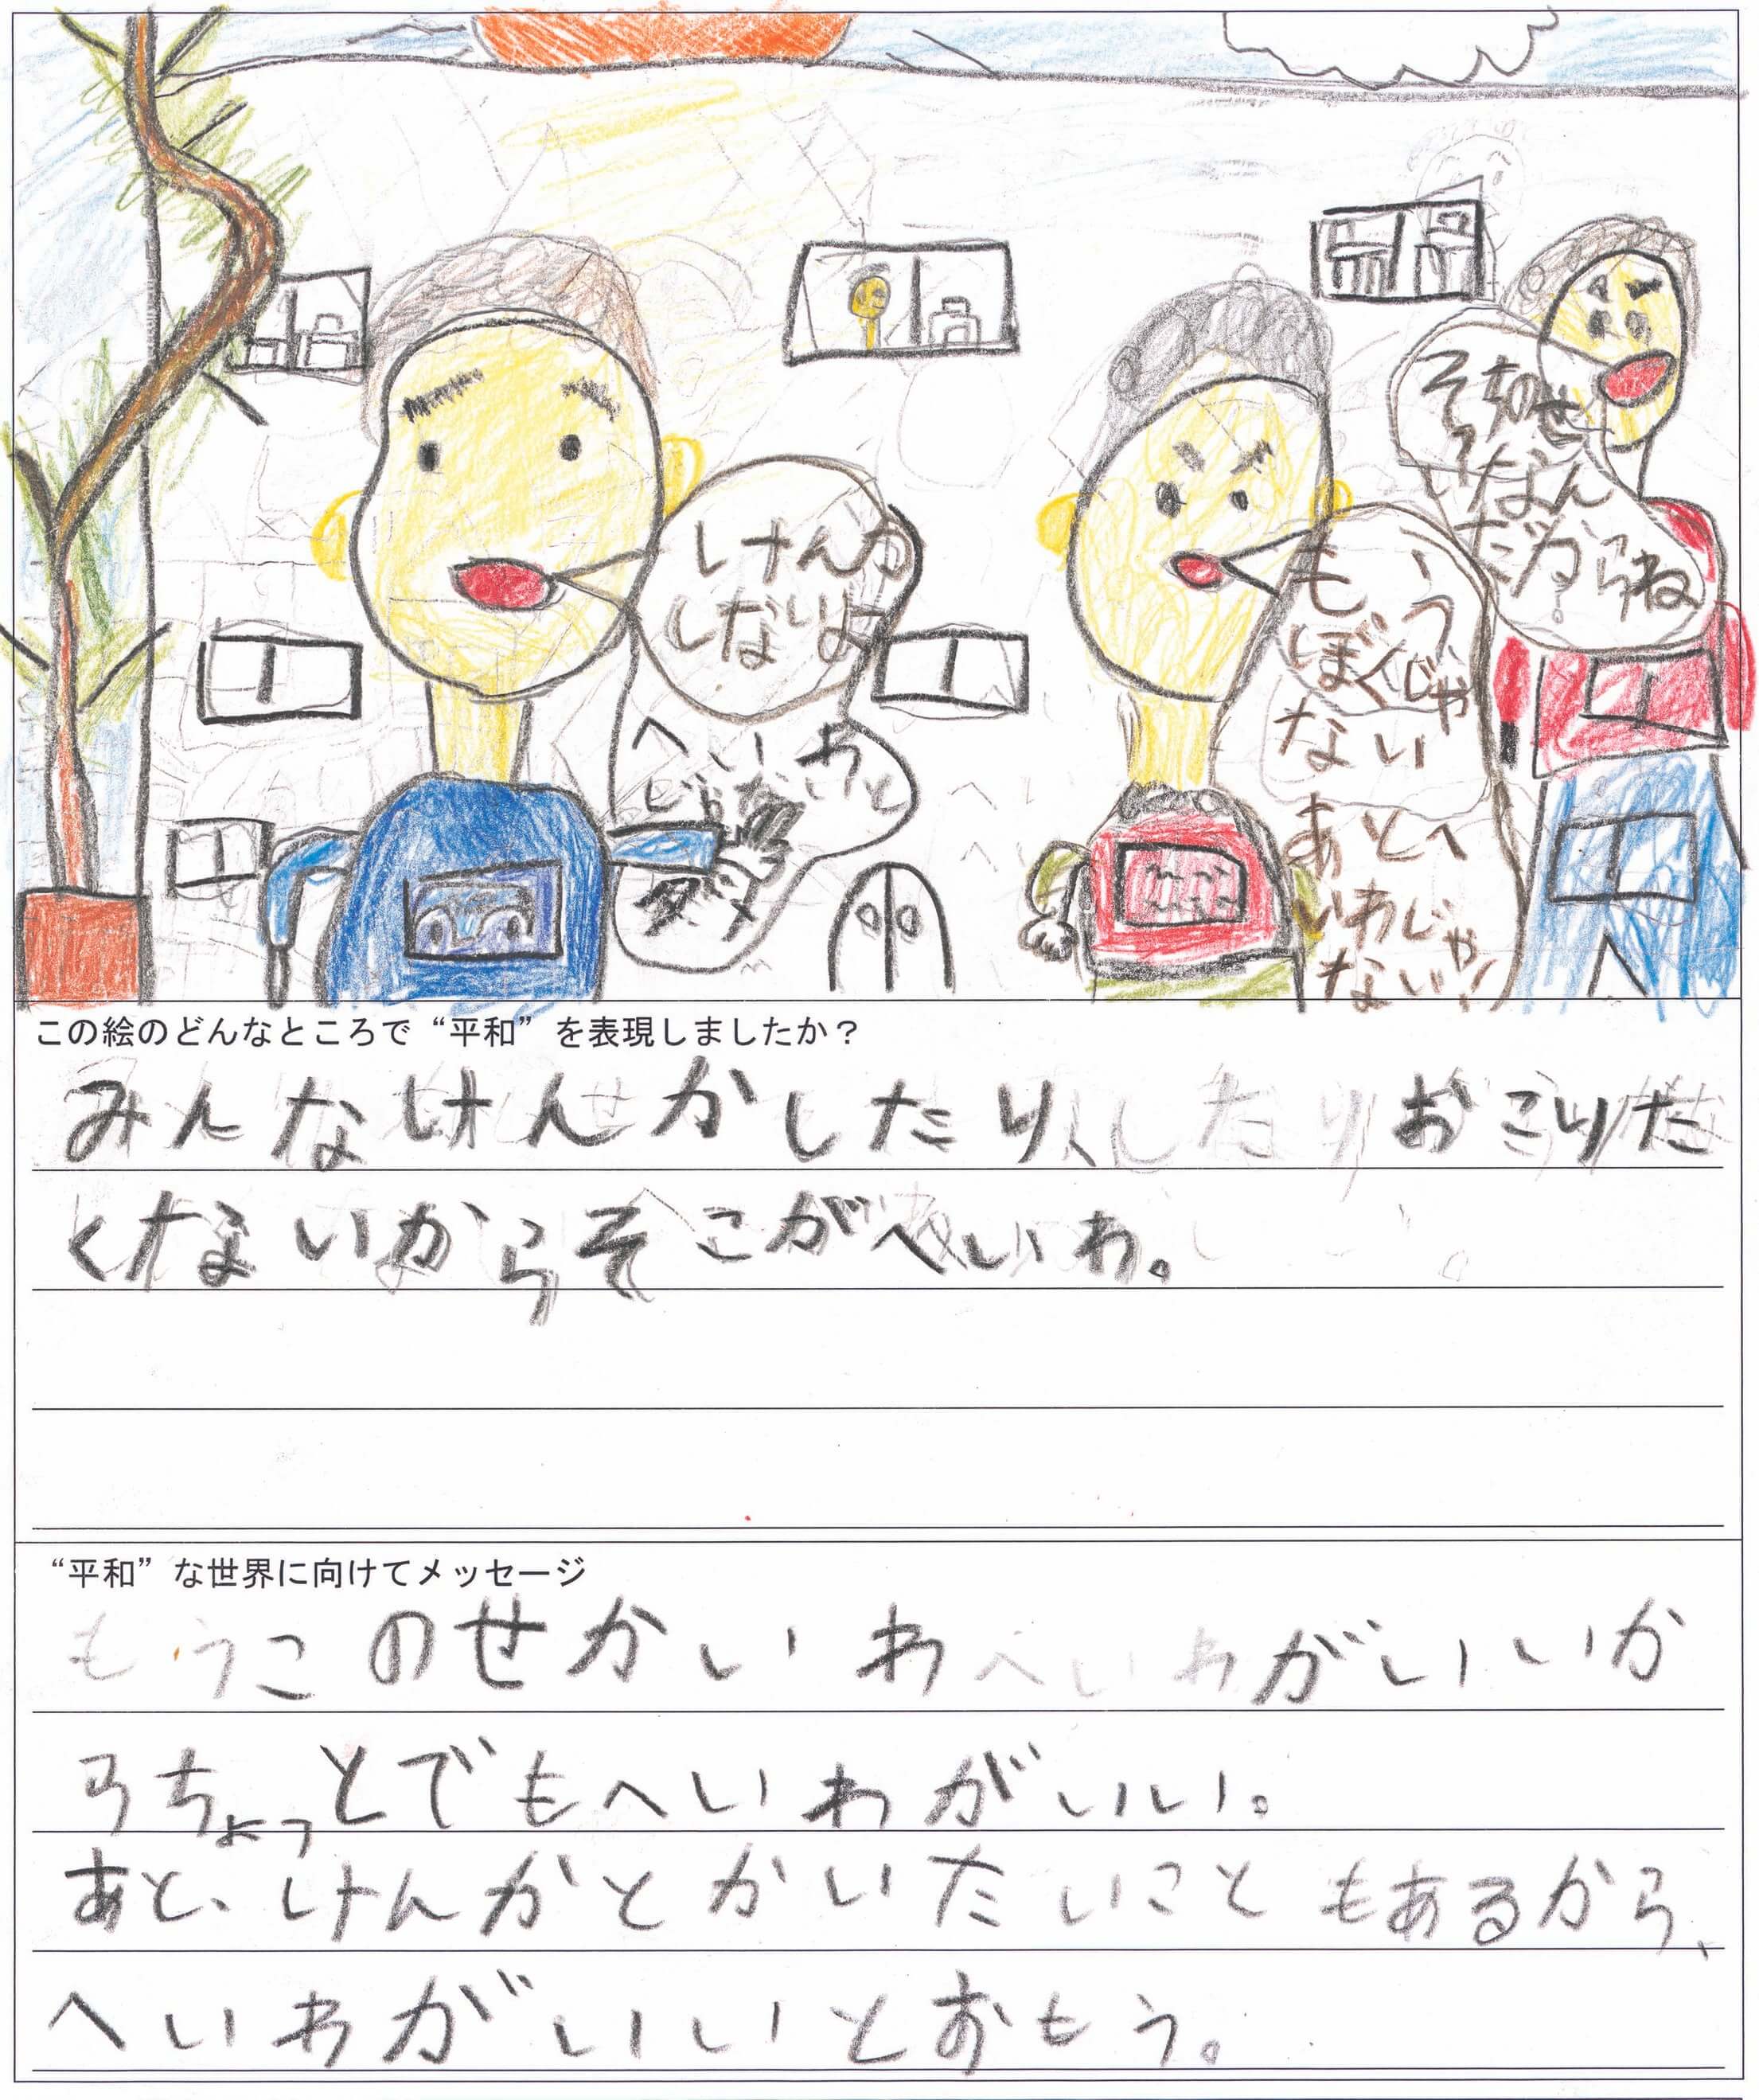 けんか
しないよ
へいわと
じゃない
ダメ
もう
ぼくじゃ
ない
あとへ
いわじゃ
ないや!
なん
だからね
この絵のどんなところで“平和”を表現しましたか？
みんなけんかしたり、したりおこりた
くないからそこがへいわ。
“平和”な世界に向けてメッセージ
もうこのせかいわへいわがいいか
らちょっとでもへいわがいい。
あと、けんかとかいたいこともあるから、
へいわがいいとおもう。